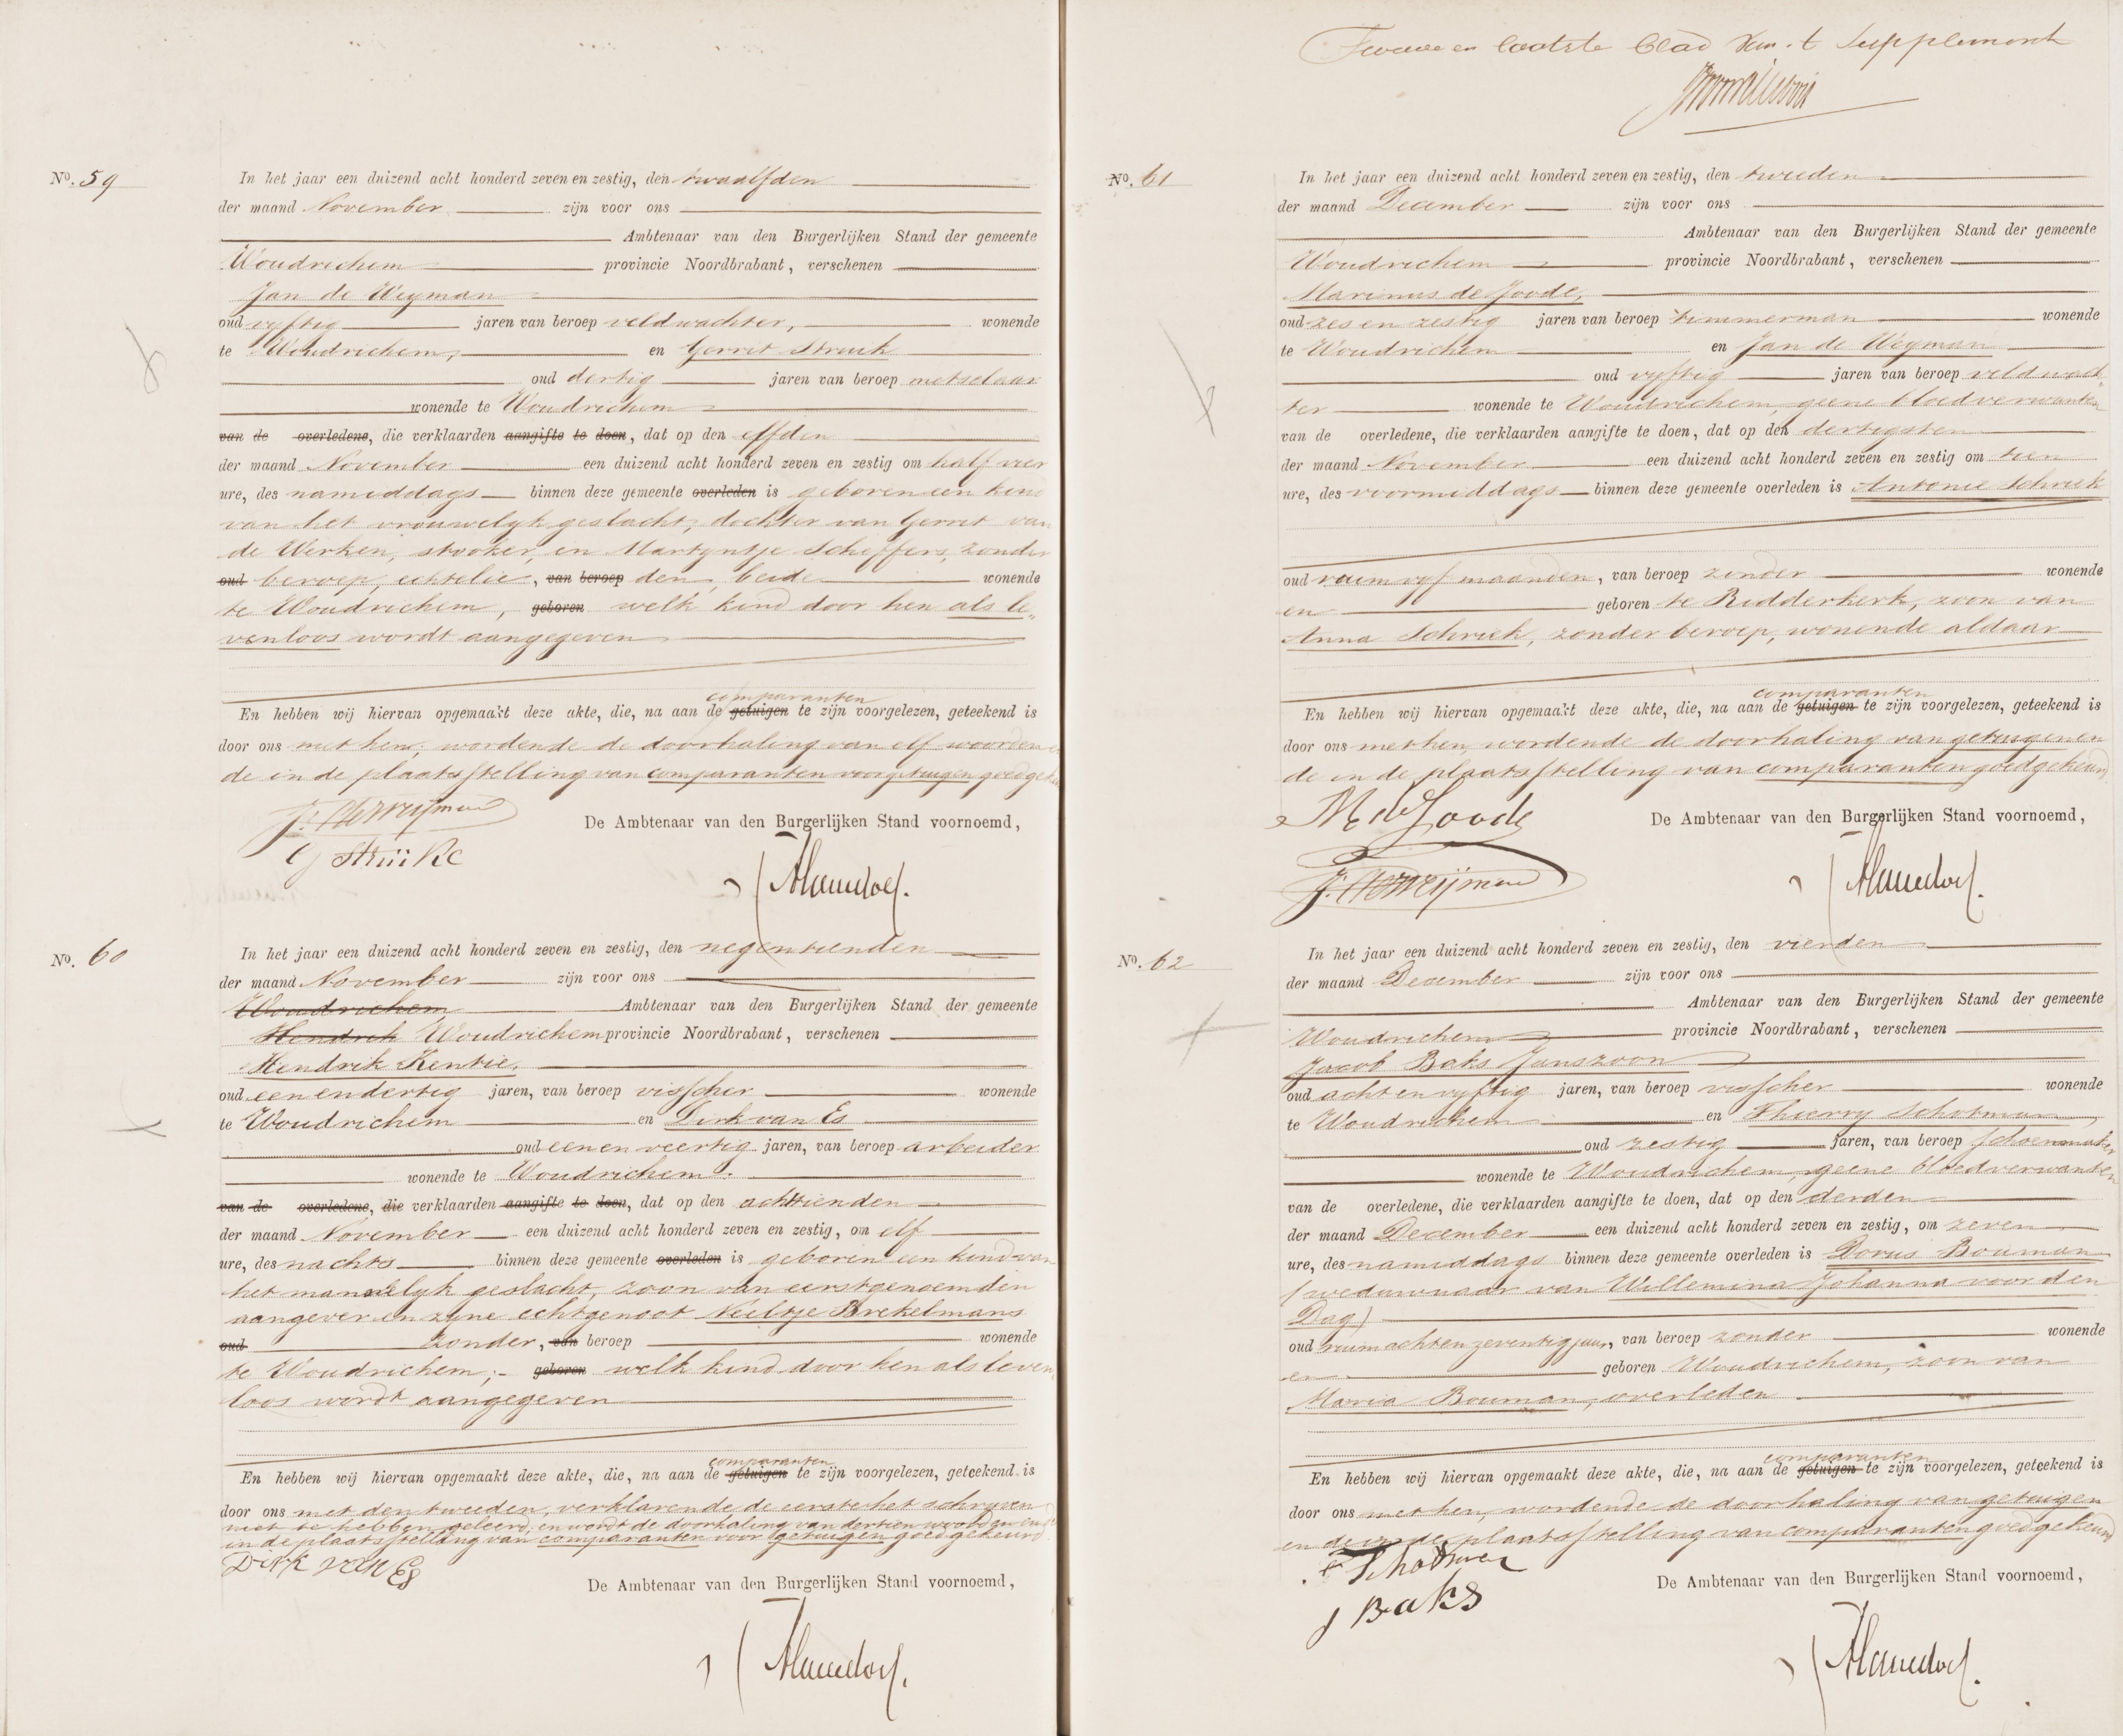 No. 59
In het jaar een duizend acht honderd zeven en zestig, den twaalfden
der maand November zijn voor ons
Ambtenaar van den Burgerlijken Stand der gemeente
Woudrichem provincie Noordbrabant, verschenen
Jan de Weyman
oud vyftig jaren van beroep veldwachter, wonende
te Woudrichem, en Gerrit Struik
oud dertig jaren van beroep metselaar
wonende te Woudrichem
van de overledene, die verklaarden aangifte te doen, dat op den elfden
der maand November een duizend acht honderd zeven en zestig om half vier
ure, des namiddags binnen deze gemeente overleden is geboren een kind
van het vrouwelyk geslacht, dochter van Gerrit van
de Werken, stooker, en Martyntje Scheffers, zonder
oud beroep, echtelie, van beroep den, beide wonende
te Woudrichem, geboren welk kind door hen als le„
venloos wordt aangegeven
comparanten
En hebben wij hiervan opgemaakt deze akte, die, na aan de getuigen te zijn voorgelezen, geteekend is
door ons met hen; wordende de doorhaling van elf woorden en
de in de plaatsstelling van comparanten voor getuigen goedgekeurd
J: de Weijman
G Struik
De Ambtenaar van den Burgerlijken Stand voornoemd,
No. 60
In het jaar een duizend acht honderd zeven en zestig, den negentienden
der maand November zijn voor ons
Woudrichem Ambtenaar van den Burgerlijken Stand der gemeente
Hendrik Woudrichem provincie Noordbrabant, verschenen
Hendrik Kentie,
oud eenendertig jaren, van beroep visscher wonende
te Woudrichem en Dirk van Es
oud eenenveertig jaren, van beroep arbeider
wonende te Woudrichem
van de overledene, die verklaarden aangifte te doen, dat op den achttienden
der maand November een duizend acht honderd zeven en zestig, om elf
ure, des nachts binnen deze gemeente overleden is geboren een kind van
het mannelyk geslacht, zoon van eerstgenoemden
aangever en zyne echtgenoot Neeltje Brekelmans
oud zonder, van beroep wonende
te Woudrichem; geboren welk kind door hen als leven„
loos wordt aangegeven
comparanten
En hebben wij hiervan opgemaakt deze akte, die, na aan de getuigen te zijn voorgelezen, geteekend is
door ons met den tweeden, verklarende de eerste het schryven
niet te hebben geleerd, en wordt de doorhaling van dertien woorden en de
in de plaatsstelling van comparanten voor getuigen goedgekeurd
Dirk van Es
De Ambtenaar van den Burgerlijken Stand voornoemd,
Tweede en laatste blad van 't Supplement
No. 61
In het jaar een duizend acht honderd zeven en zestig, den tweeden
der maand December zijn voor ons
Ambtenaar van den Burgerlijken Stand der gemeente
Woudrichem provincie Noordbrabant, verschenen
Marinus de Joode,
oud zes en zestig jaren van beroep timmerman wonende
te Woudrichem en Jan de Weyman
oud vyftig jaren van beroep veldwach„
ter wonende te Woudrichem, geene bloedverwanten
van de overledene, die verklaarden aangifte te doen, dat op den dertigsten
der maand November een duizend acht honderd zeven en zestig om tien
ure, des voormiddags binnen deze gemeente overleden is Antonie Schriek
oud ruim vyf maanden, van beroep zonder wonende
en geboren te Ridderkerk, zoon van
Anna Schriek, zonder beroep, wonende aldaar
comparanten
En hebben wij hiervan opgemaakt deze akte, die, na aan de getuigen te zijn voorgelezen, geteekend is
door ons met hen, wordende de doorhaling van getuigen en
de in de plaatsstelling van comparanten goedgekeurd
M de Joode
J: de Weijman
De Ambtenaar van den Burgerlijken Stand voornoemd,
No. 62
In het jaar een duizend acht honderd zeven en zestig, den vierden
der maand December zijn voor ons
Ambtenaar van den Burgerlijken Stand der gemeente
Woudrichem provincie Noordbrabant, verschenen
Jacob Baks Janszoon
oud acht en vyftig jaren, van beroep visscher wonende
te Woudrichem en Thierry Schotman
oud zestig jaren, van beroep schoenmaker
wonende te Woudrichem, geene bloedverwanten
van de overledene, die verklaarden aangifte te doen, dat op den derden
der maand December een duizend acht honderd zeven en zestig, om zeven
ure, des namiddags binnen deze gemeente overleden is Dorus Bouman
(weduwnaar van Willemina Johanna voor den
Dag)
oud ruim achtenzeventig jaar, van beroep zonder wonende
en geboren Woudrichem, zoon van
Maria Bouman, overleden
comparanten
En hebben wij hiervan opgemaakt deze akte, die, na aan de getuigen te zijn voorgelezen, geteekend is
door ons met hen, wordende de doorhaling van getuigen
en de in de plaatsstelling van comparanten goedgekeurd
Schotman
J Baks
De Ambtenaar van den Burgerlijken Stand voornoemd,